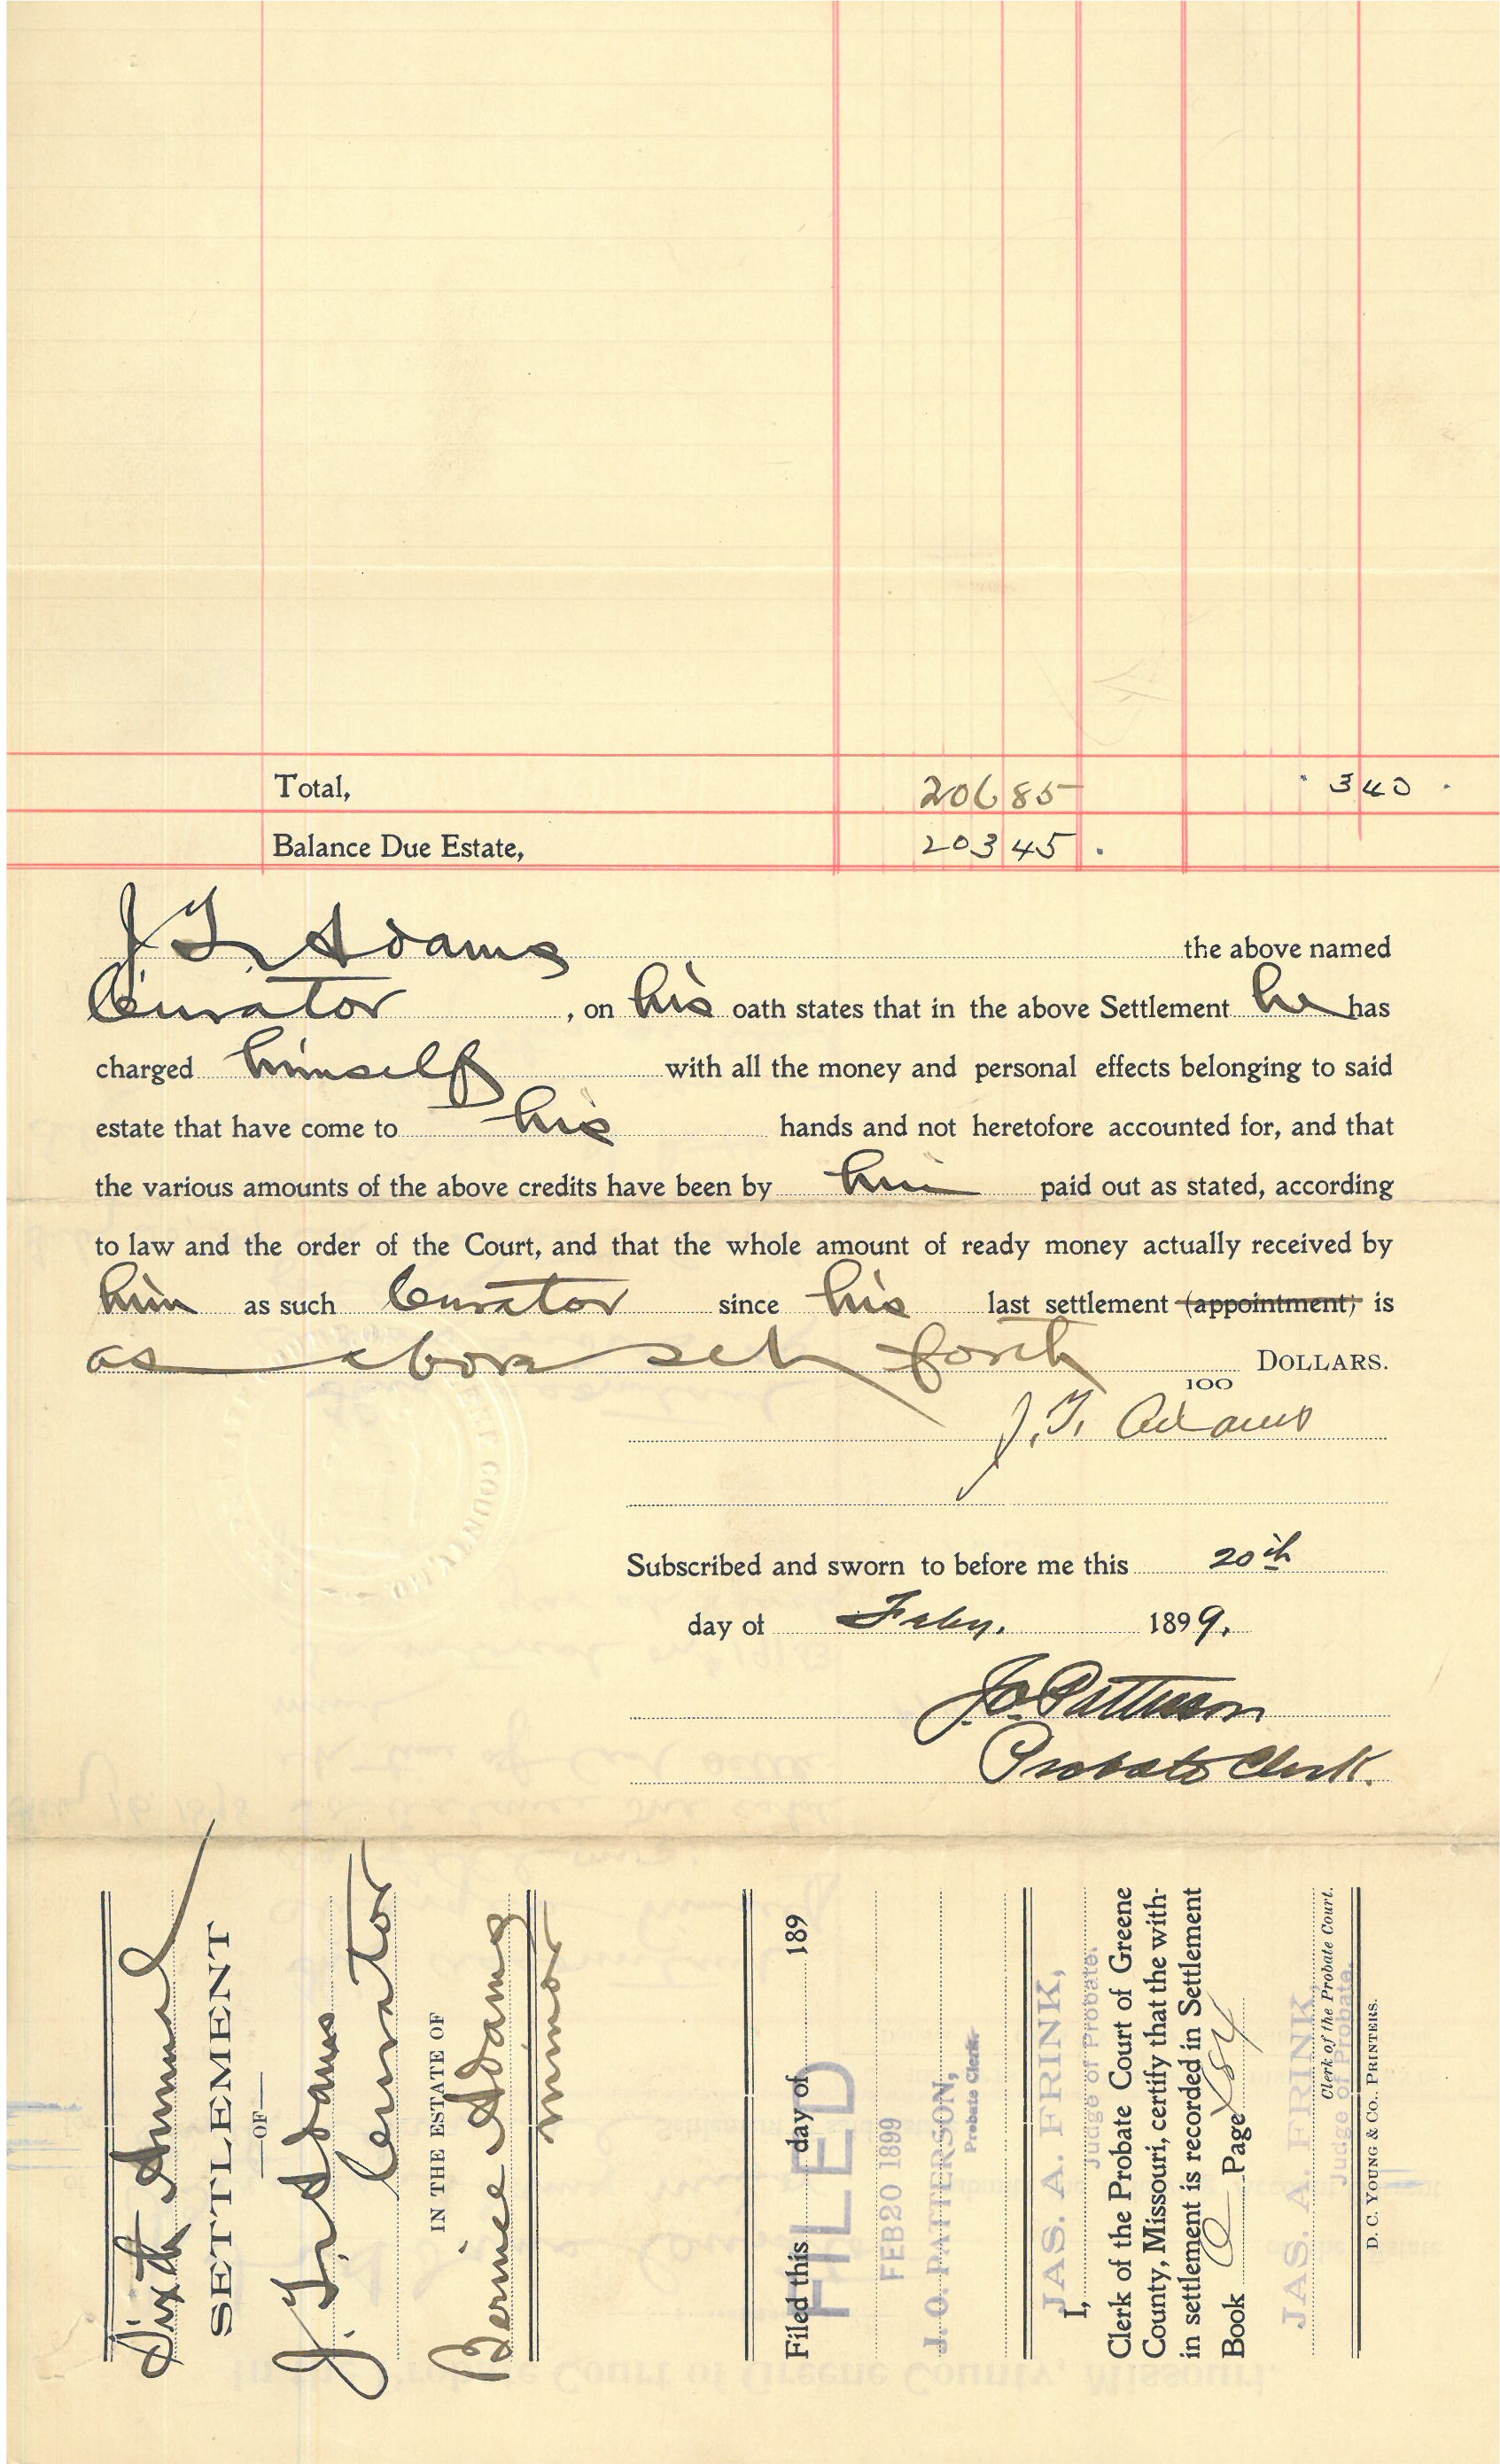 Total, 206 85 340
Balance Due Estate, 203 45
J. T. Adams the above named
Curator, on his oath states that in the above Settlement he has
charged himself with all the money and personal effects belonging to said
estate that have come to his hands and not heretofore accounted for, and that
the various amounts of the above credits have been by him paid out as stated, according
to law and the order of the Court, and that the whole amount of ready money actually received by
him as such Curator since his last settlement (appointment) is
as above set forth 100 DOLLARS.
J. T. Adams
Subscribed and sworn to before me this 20th
day of Feby. 1899.
J. O. Patterson
Probate Clerk.
Sixth Annual
SETTLEMENT
—OF—
J. T. Adams
Curator
IN THE ESTATE OF
Bernice Adams
minor
Filed this day of 189
FILED
FEB 20 1899
J. O. PATTERSON,
Probate Clerk.
JAS. A. FRINK,
I, Judge of Probate.
Clerk of the Probate Court of Greene
County, Missouri, certify that the with-
in settlement is recorded in Settlement
Book Page
JAS. A. FRINK,
Clerk of the Probate Court.
Judge of Probate.
D. C. YOUNG & CO., PRINTERS.